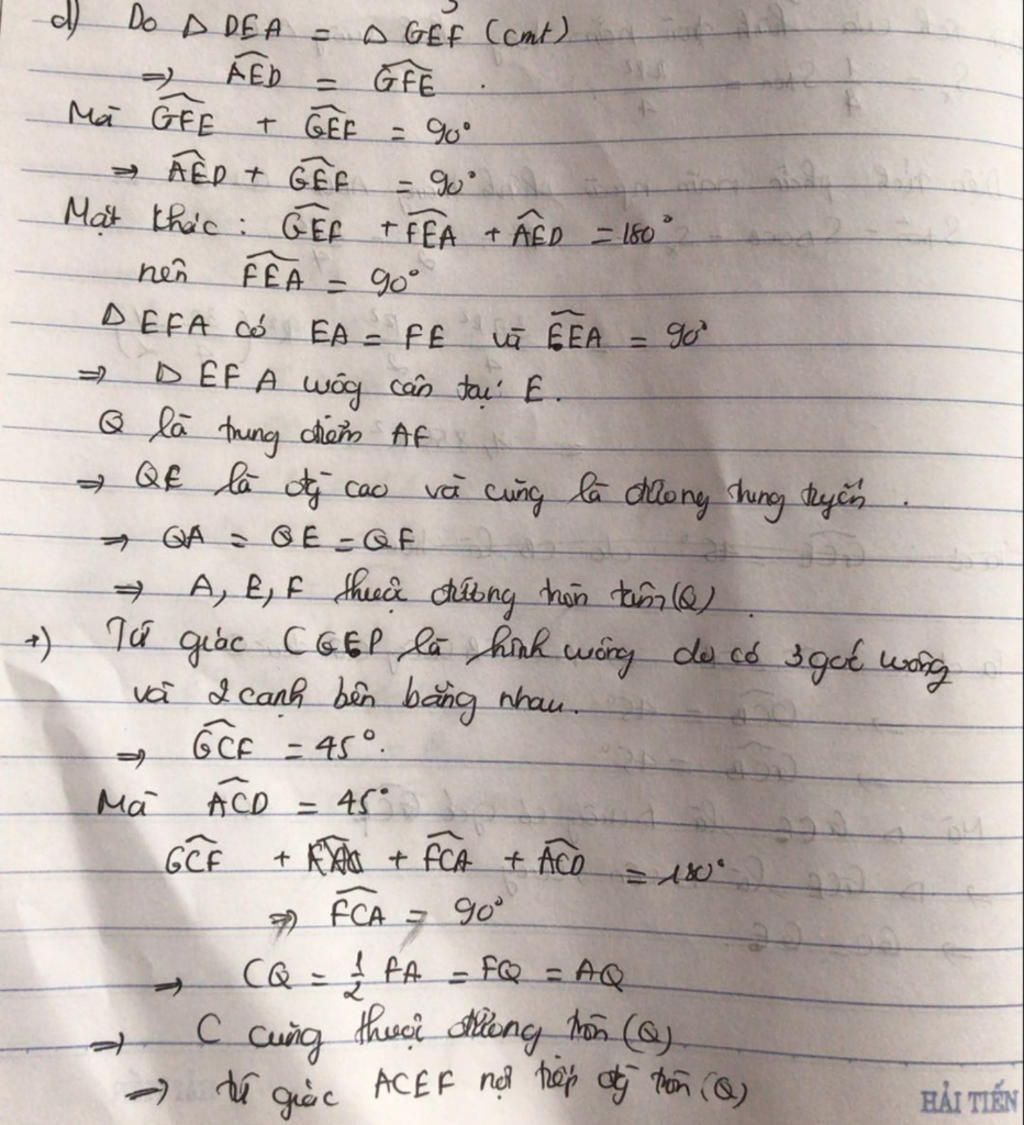 d) Do Δ DEA = Δ GEF (cmt)
⇒ \widehat{AED} = \widehat{GFE}.
Mà \widehat{GFE} + \widehat{GEF} = 90°
⇒ \widehat{AED} + \widehat{GEF} = 90°
Mặt khác: \widehat{GEF} + \widehat{FEA} + \widehat{AED} = 180°
nên \widehat{FEA} = 90°
Δ EFA có EA = FE và \widehat{EEA} = 90°
⇒ Δ EFA wôg cân tại E.
Q là trung điểm AF
⇒ QE là đg cao và cũng là đường trung tuyến.
⇒ QA = QE = QF
⇒ A, E, F thuộc đường tròn tâm (Q)
+) Tứ giác CGEP là hình wông do có 3 góc wông
và 2 cạnh bên bằng nhau.
⇒ \widehat{GCF} = 45°.
Mà \widehat{ACD} = 45°
\widehat{GCF} + \widehat{FCA} + \widehat{ACD} = 180°
⇒ \widehat{FCA} = 90°
⇒ CQ = \frac{1}{2} FA = FQ = AQ
⇒ C cũng thuộc đường tròn (Q)
⇒ tứ giác ACEF nội tiếp đg tròn (Q)
HẢI TIẾN